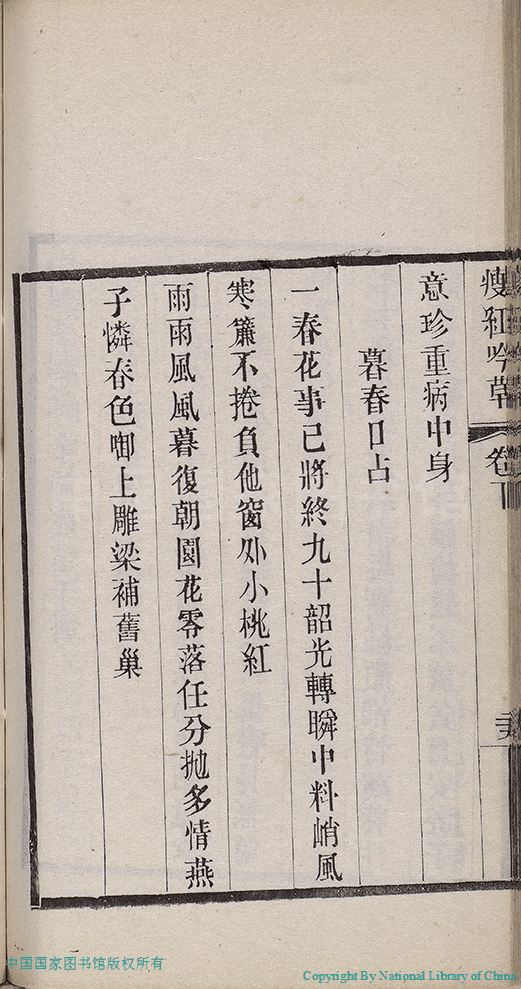 瘦紅吟草 卷下
意珍重病中身
暮春口占
一春花事已將終九十韶光轉瞬中料峭風
寒簾不捲負他窗外小桃紅
雨雨風風暮復朝園花零落任分拋多情燕
子憐春色啣上雕梁補舊巢
中国国家图书馆版权所有
Copyright By National Library of China